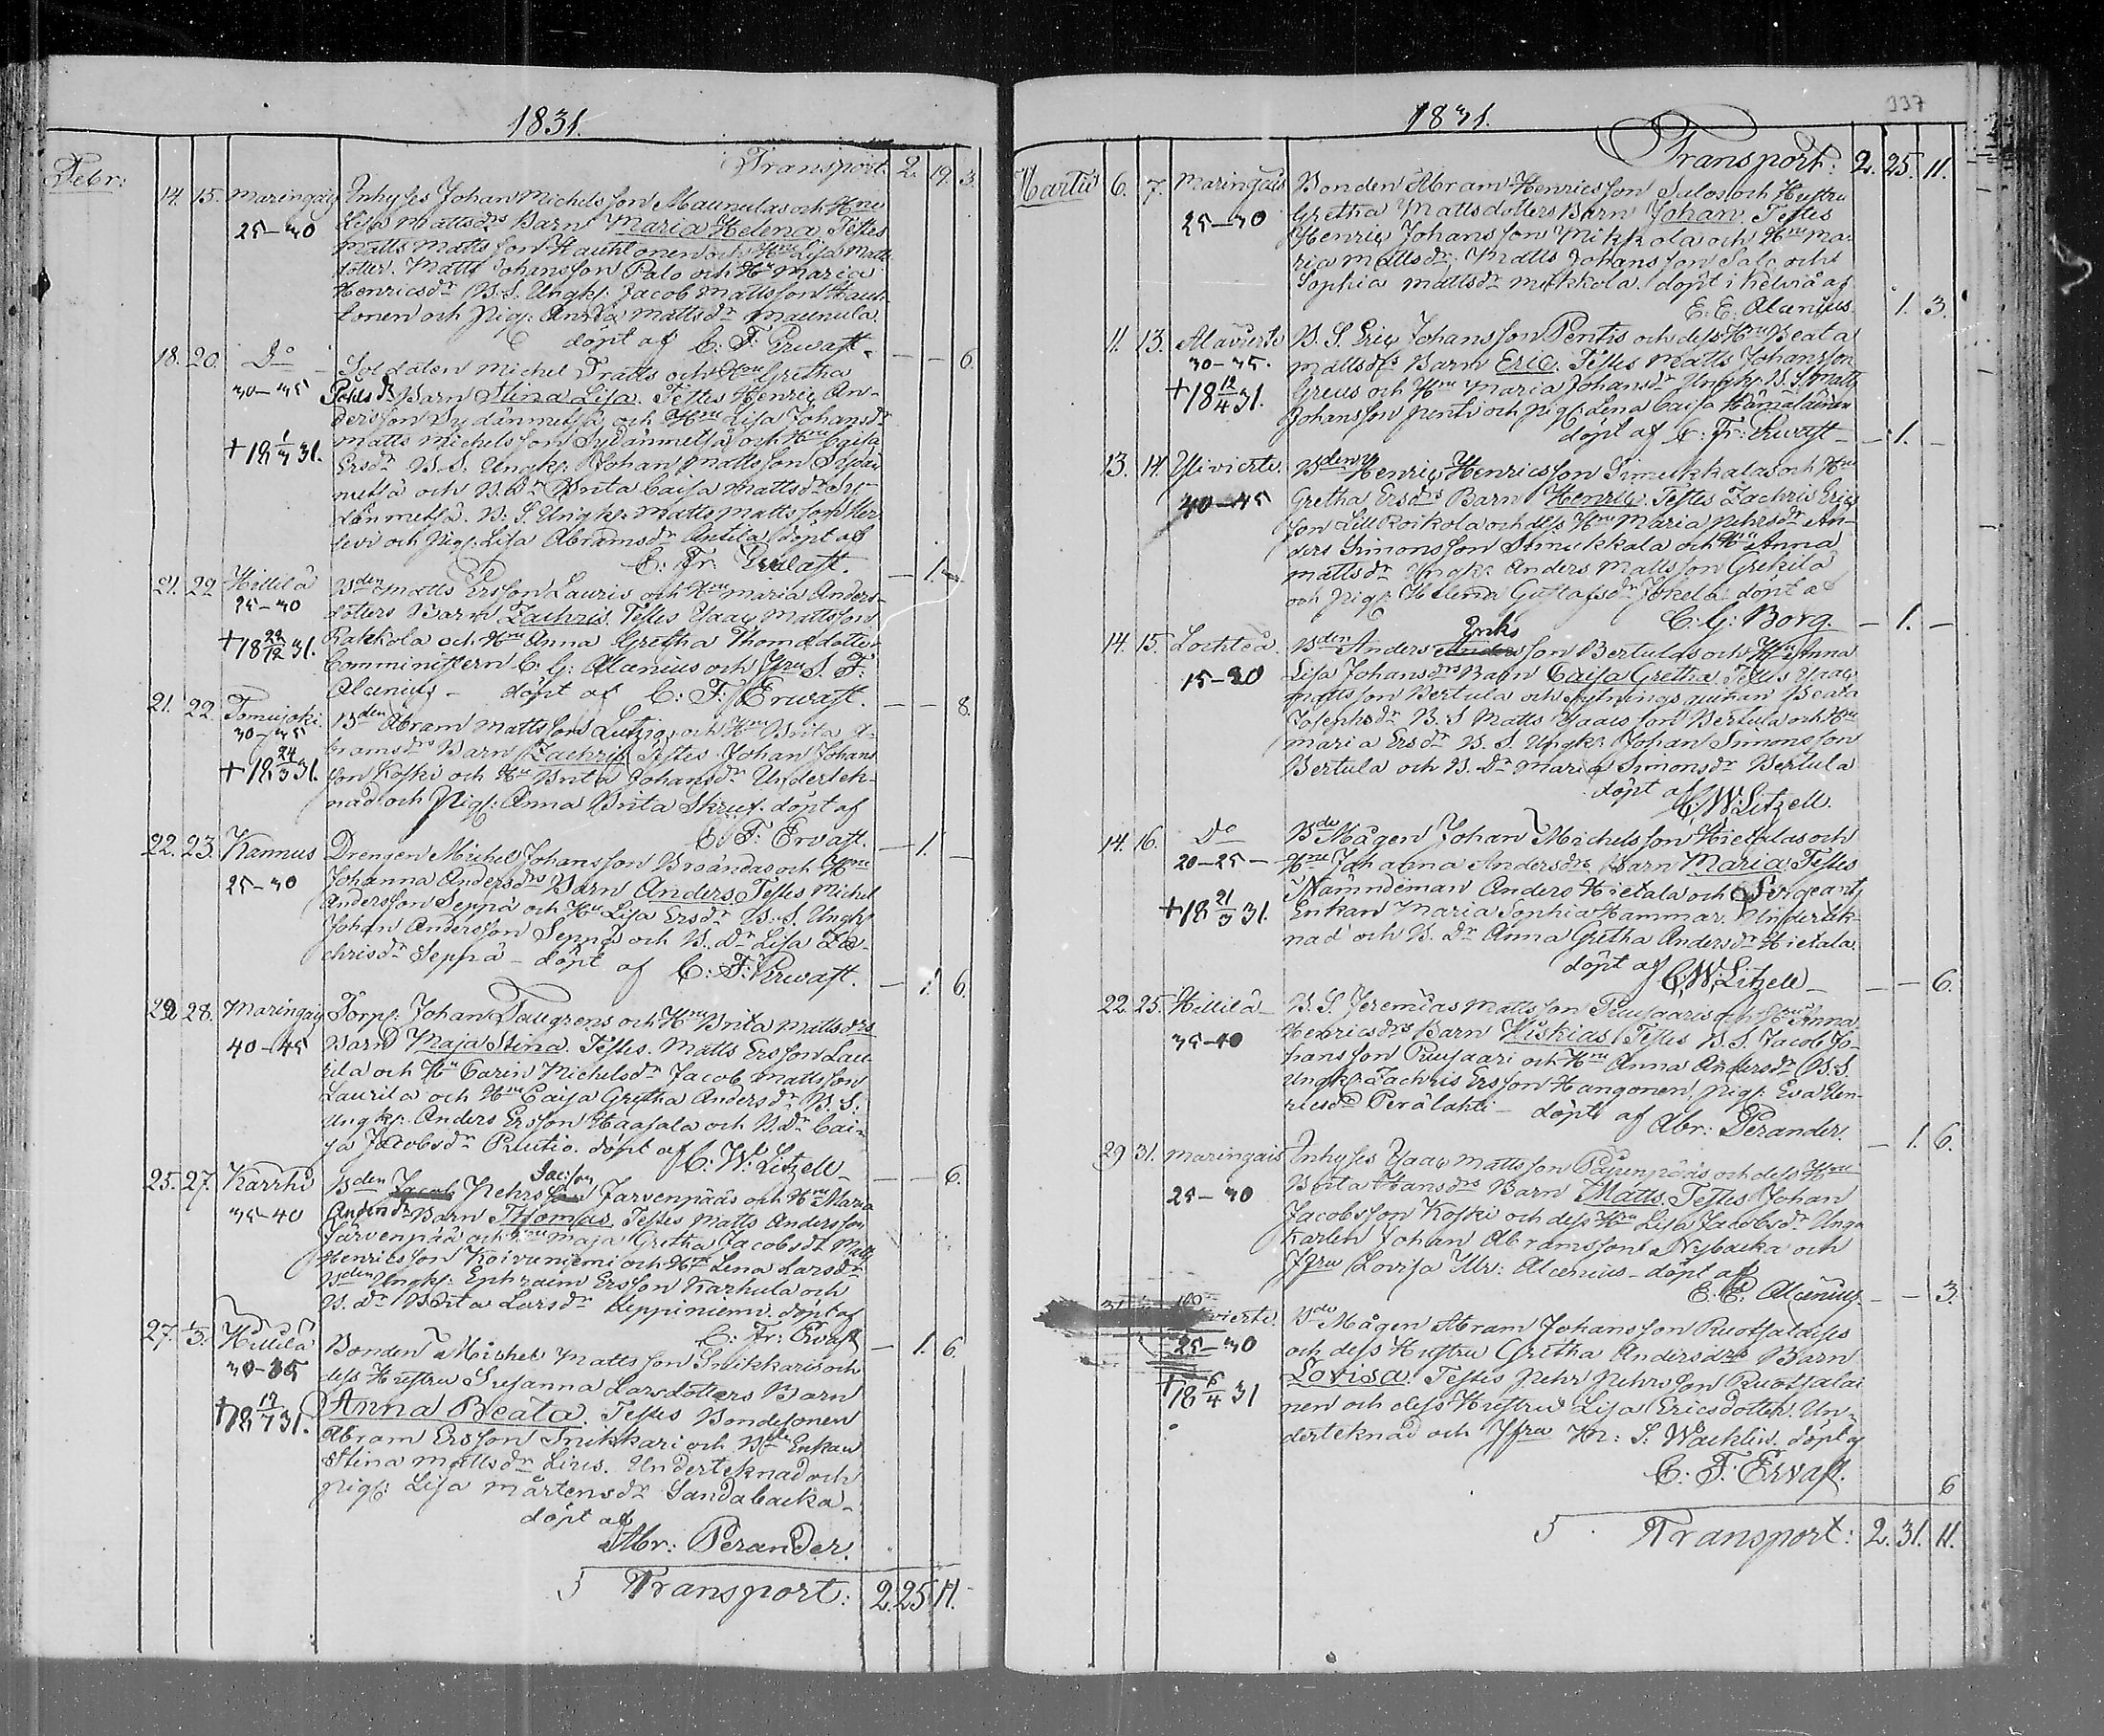 1831.
Febr:
Transport. 2. 19. 3.
14. 15. Maringais Inhyses Johan Michelsson Maunulas och Hru
25–30 Lisa Mattsdrs Barn Maria Helena. Testes
Matts Mattsson Hauhtonen och Hru Lisa Matts-
dotter. Matts Johansson Palo och Hu Maria
Henricsdr B. S. Ungk: Jacob Mattsson Hauh-
tonen och Pig: Anna Mattsdr Maunula.
döpt af C: F: Ervast. — — 6.
18. 20. Do Soldaten Michel Tratts och Hru Gretha
30–35 Barn Stina Lisa. Testes Henric An-
dersson Sydänmetsä och Hru Lisa Johansdr
+ 18 1/3 31. Matts Michelsson Sydänmetsä och Hru Caisa
Ersdr B. S. Ungk: Johan Mattsson Sydän
metsä och B. Dr Brita Caisa Mattsdr Sy-
dänmetsä. B. S. Ungk: Matts Mattsson
och Pig: Lisa Abramsdr Antila döpt af
C: Fr: Ervast. — 1. —
21. 22. Hillilä Bden Matts Ersson Lauris och Hru Maria Anders-
25–30 dotters Barn Zachris. Testes Isaac Mattsson
+ 18 29/12 31. Rahkola och Hru Anna Gretha Thomasdotter
Comministern C. G: Alcenius och Jfru S. F:
Alcenius – döpt af C: F: Ervast. — — 8.
21. 22. Tomujoki Bden Abram Mattsson Lutzig och Hu Brita A-
30–35 bramsdrs Barn Zachris Testes Johan Johans
+ 18 24/3 31. son Koski och Hu Brita Johansdr Underteck-
nad och Pig: Anna Brita Skruf. döpt af
C: F: Ervast. — 1. —
22. 23. Kannus Drengen Michel Johansson Broändas och Hru
25–30 Johanna Andersdrs Barn Anders. Testes Michel
Andersson Seppä och Hu Lisa Ersdr B. S. Ungk:
Johan Andersson Seppä och B. Dr Lisa Za-
chrisdr Seppä – döpt af C: F: Ervast. — 1. 6.
22. 28. Maringais Torp: Johan Tallgrens och Hru Brita Mattsdrs
40–45 Barn Maja Stina. Testes. Matts Ersson Lau
rila och Hu Caren Michelsdr Jacob Mattsson
Laurila och Hru Caisa Gretha Andersdr B. S.
Ungk: Anders Ersson Haasala och B. Dr Cai-
sa Jacobsdr Ruutio. döpt af C: W: Litzell — — 6.
25. 27. Karrhi Bden Jacob Nehrs Jacsson Jarvenpääs och Hru Maria
35–40 Andersdr Barn Thomas. Testes Matts Andersson
Järvenpää och Hru Maja Gretha Jacobsdr Matts
Henricsson Koivuniemi och Hr Lena Larsdr
Bden Ungk: Ephraim Ersson Karhula och
B. Dr Brita Larsdr Leppiniemi. döpt af
C: Fr: Ervast — 1. 6.
27. 1/3. Hillilä Bonden Michel Mattsson Snikkaris och
30–35 dess Hustru Susanna Larsdotters Barn
+ 18 12/7 31. Anna Beata. Testes Bondesonen
Abram Ersson Snikkari och Bde Enkan
Stina Mattsdr Lius. Underteknad och
Pig: Lisa Mårtensdr Sandabacka –
döpt af
Abr: Perander.
5 Transport: 2. 25. 11.
1831.
337
Transport: 2. 25. 11.
Martii 6. 7. Maringais Bonden Abram Henricsson Salos och Hustru
25–30 Gretha Mattsdotters Barn Johan. Testes
Henric Johansson Mikkola och Hru Ma-
ria Mattsdr. Matts Johansson Salo och
Sophia Mattsdr Mikkola. döpt i Kelviå af
E. E. Alcenius. 1. 3.
11. 13. Alavierte B. S. Eric Johansson Pentis och dess Hru Beata
30–35. Mattsdrs Barn Eric. Testes Matts Johansson
+ 18 12/4 31. Greus och Hru Maria Johansdr Ungk: B. S. Matts
Johansson Pentti och Pig: Lena Caisa Hämäläinen
döpt af C: Fr: Ervast – — 1. —
13. 14. Ylivierte. Bden Henric Henricsson Simukkalas och Hru
40–45 Gretha Ersdrs Barn Henric. Testes Zachris Erics
son Lill Roikola och dess Hru Maria Pehrsdr An-
ders Simonsson Simukkala och Hu Anna
Mattsdr Ungk: Anders Mattsson Grekilä
och Pig: Helena Gustafsdr Jokela döpt af
C: G: Borg — 1. —
14. 15. Lochteå. Bden Anders Eriks son Bertulas och Hu Anna
15–20 Lisa Johansdrs Barn Caisa Gretha. Testes Isaac
Mattsson Bertula och Sytningsquinan Beata
Josephsdr B. S Matts Isaacsson Bertula och Hru
Maria Ersdr B. S. Ungk: Johan Simonsson
Bertula och B. Dr Maria Simonsdr Bertula
döpt af
C. W: Litzell.
14. 16. Do Bde Mågen Johan Michelsson Hietalas och
20–25 – Hru Johanna Andersdrs Barn Maria. Testes
Nämndeman Anders Hietala och Sergeants
+ 18 21/3 31. Enkan Maria Sophia Hammar. Underteck-
nad och B. Dr Anna Gretha Andersdr Hietala.
döpt af C. W. Litzell – — — 6.
22. 25. Hillilä – B. S. Jeremias Mattsson Ruusaaris och Hru Anna
35–40 Henricsdrs Barn Hiskias. Testes B. S. Jacob Jo-
hansson Ruusaari och Hru Anna Andersdr B. S.
Ungk: Zachris Ersson Hangonen, Pig: Eva Hen-
ricsdr Perälahti – döpt af Abr: Perander. — 1. 6.
29 31. Maringais Inhyses Isaac Mattsson Päirenpääs och dess Hru
25–30 Brita Hansdrs Barn Matts. Testes Johan
Jacobsson Koski och dess Hru Lisa Jacobsdr Ung
karlen Johan Abramsson Nybacka och
Jfru Lovisa Ulr: Alcenius – döpt af
E. E. Alcenius — — 3.
31. vierte. Bde Mågen Abram Johansson Ruotsalaises
25–30 och dess Hustru Gretha Andersdrs Barn
+ 18 6/4 31 Lovisa. Testes Pehr Pehrsson Ruotsalai
nen och dess Hustru Lisa Ericsdotter. Un-
derteknad och Jfru M: S: Wacklin. döpt af
C: F: Ervast. 6
5 Transport: 2. 31. 11.